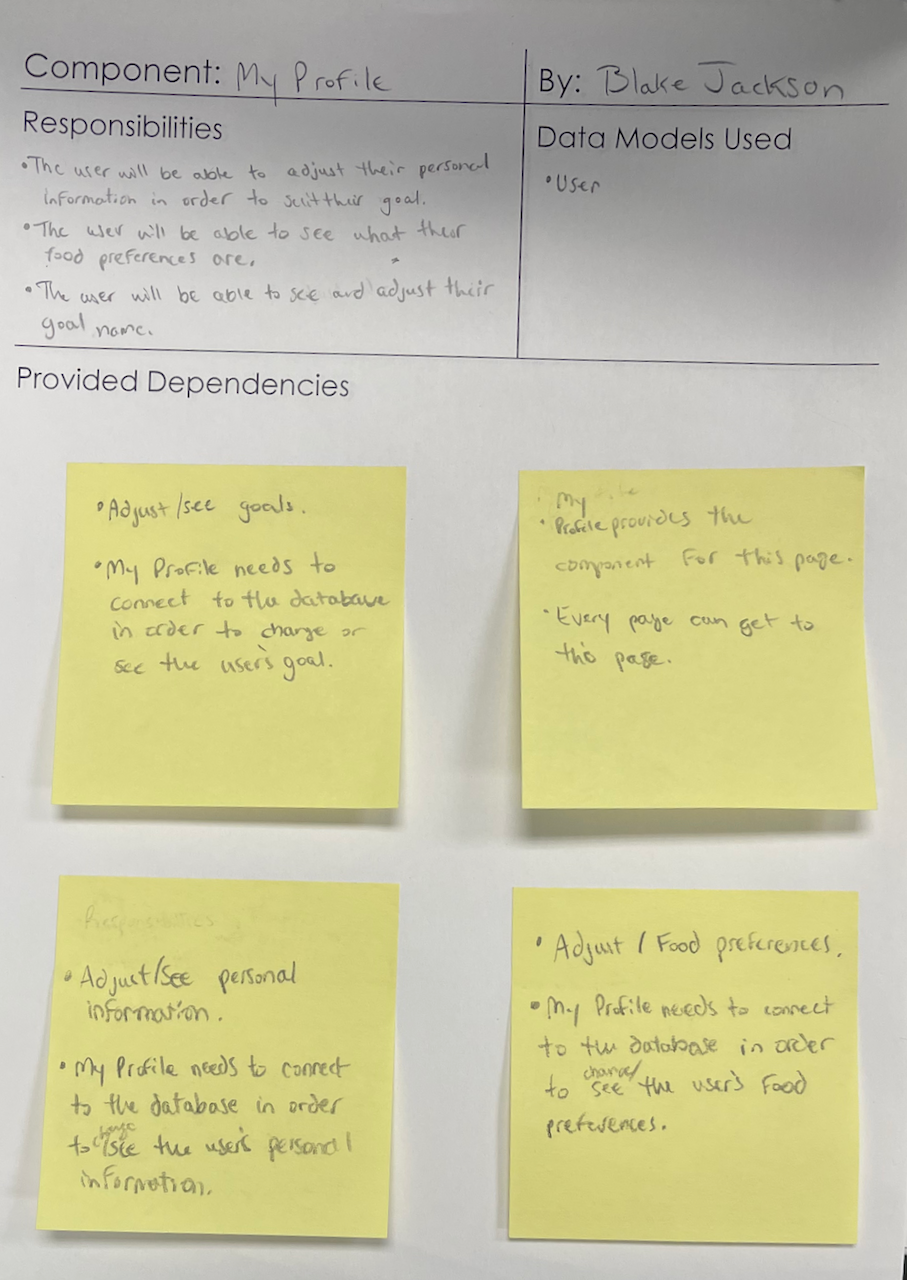 Component: My Profile
By: Blake Jackson
Responsibilities
•The user will be able to adjust their personal
information in order to suit their goal.
•The user will be able to see what their
food preferences are.
•The user will be able to see and adjust their
goal name.
Data Models Used
•User
Provided Dependencies
•Adjust/see goals.
•My Profile needs to
connect to the database
in order to change or
see the user's goal.
My
•Profile provides the
component for this page.
•Every page can get to
this page.
Responsibilities
•Adjust/See personal
information.
•My Profile needs to connect
to the database in order
change/
to see the user's personal
information.
•Adjust / Food preferences.
•My Profile needs to connect
to the database in order
change/
to see the user's food
preferences.